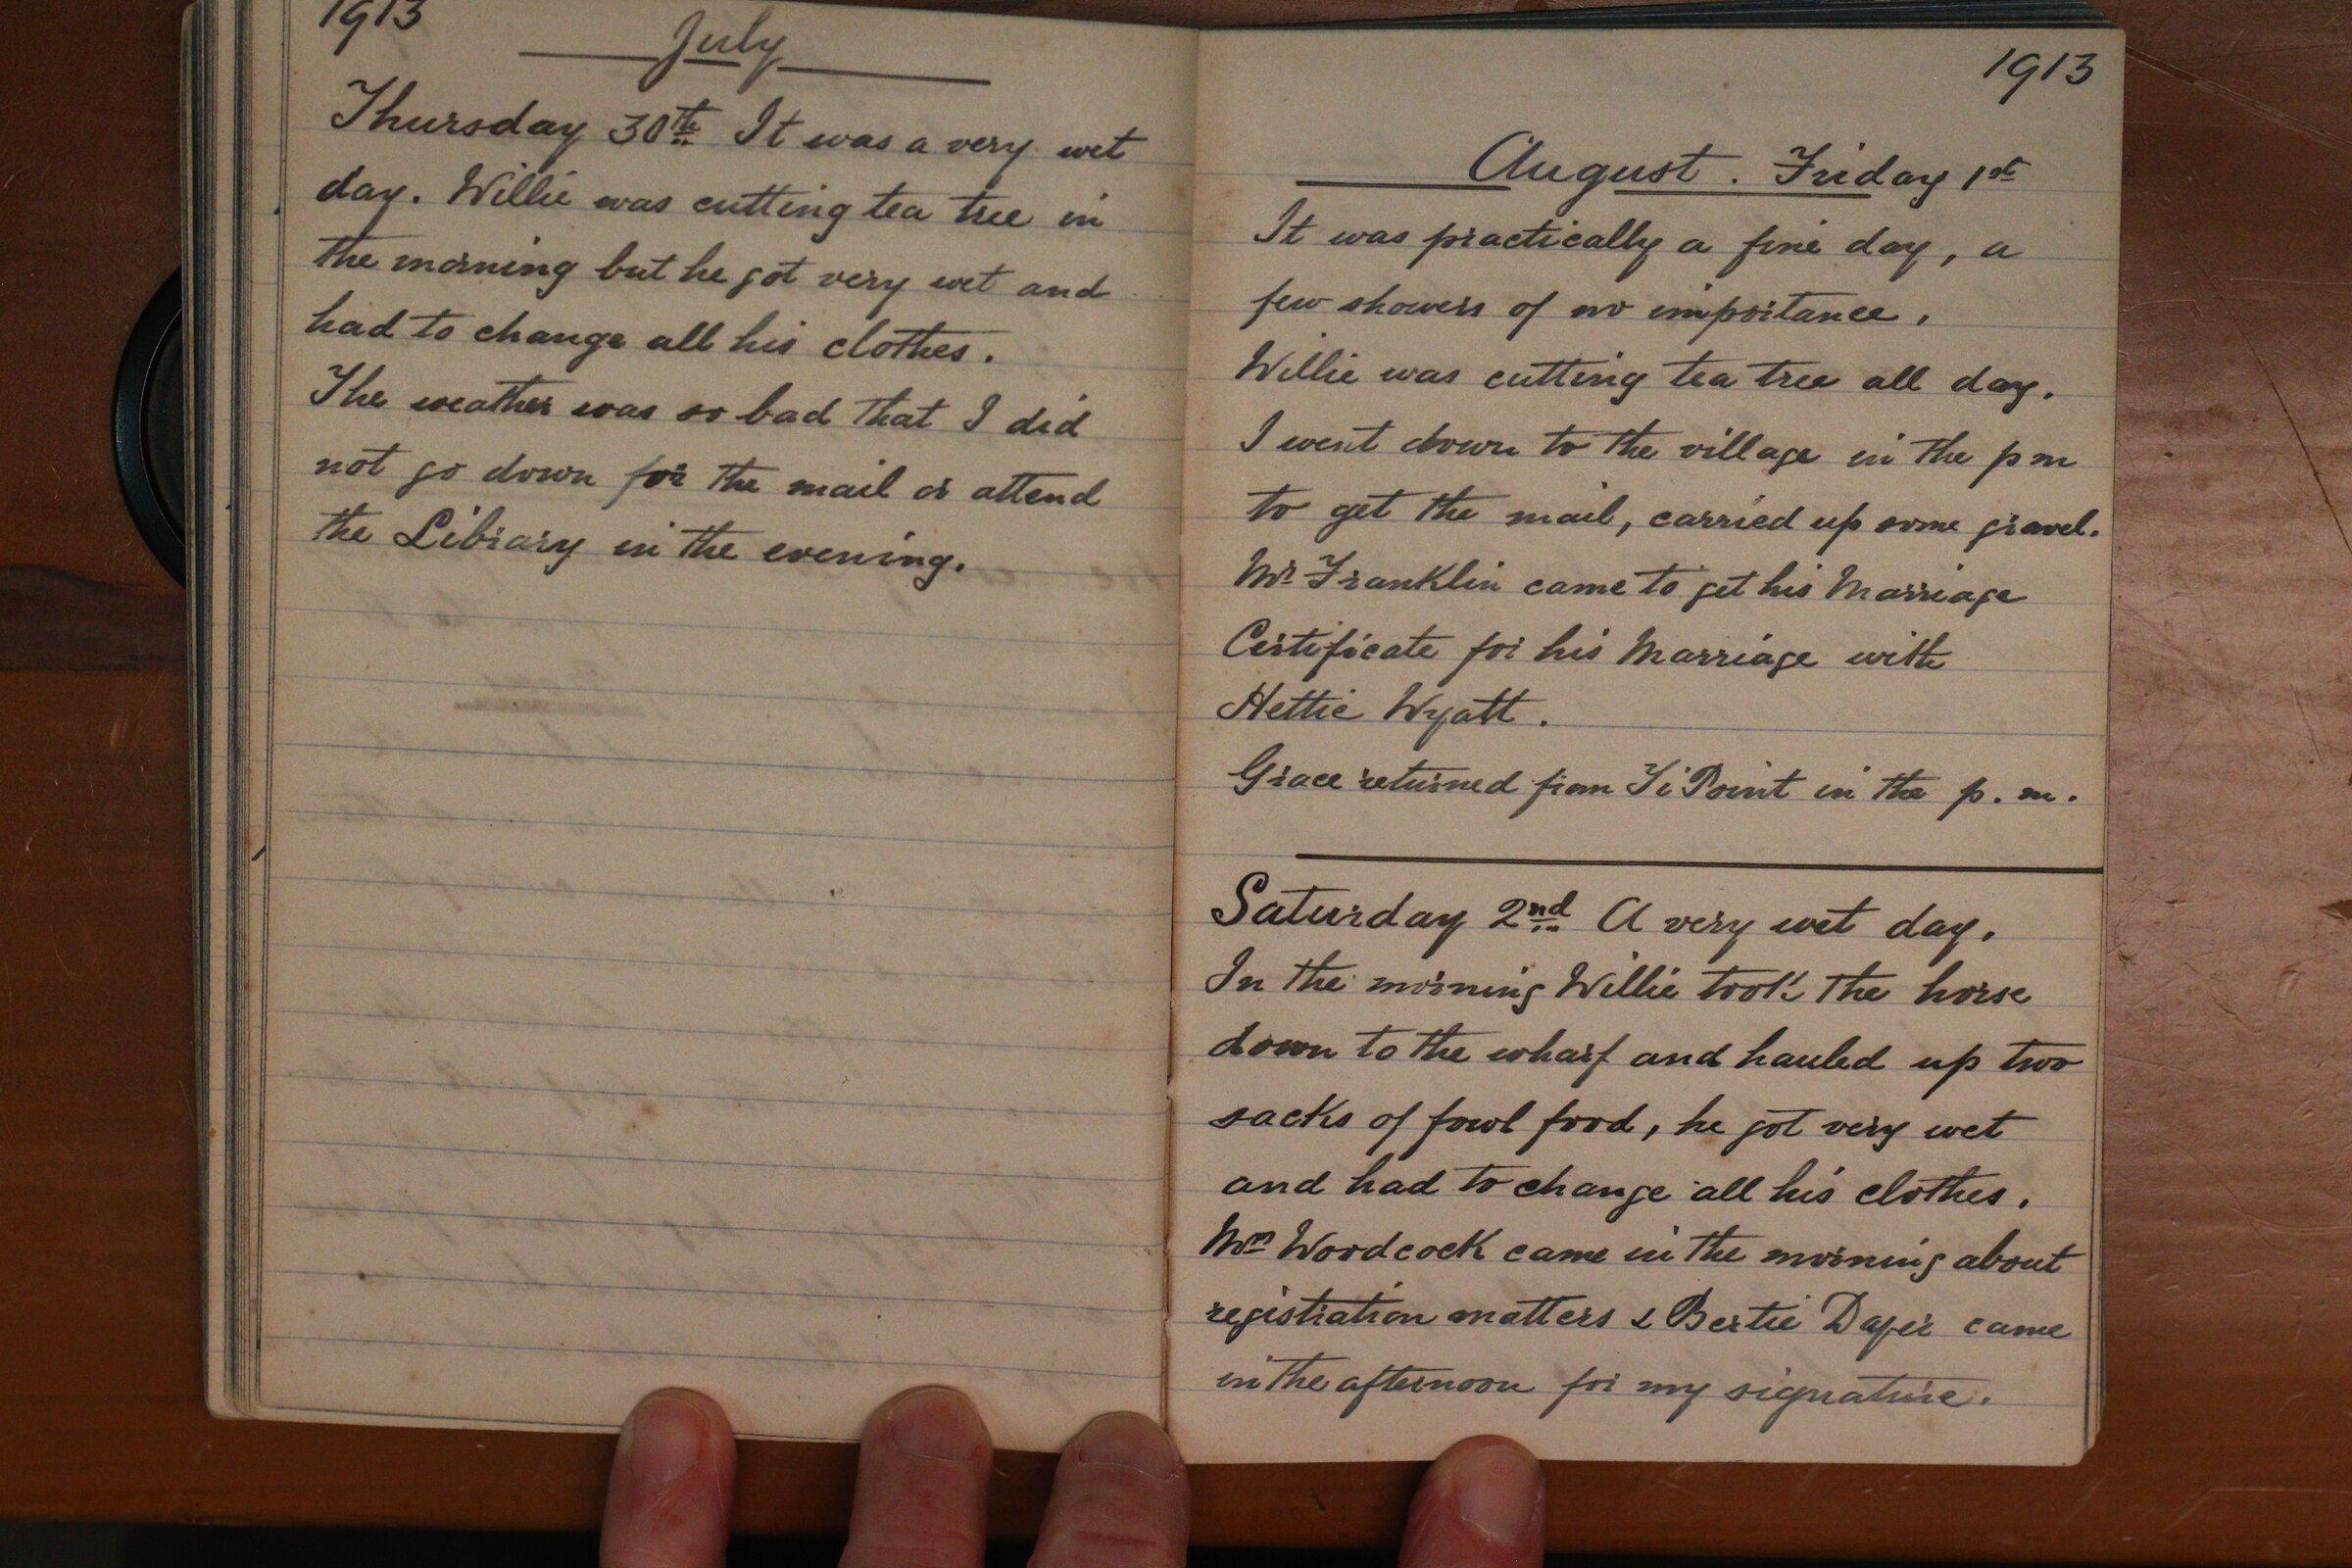 1913
July
Thursday 30th It was a very wet
day. Willie was cutting tea tree in
the morning but he got very wet and
had to change all his clothes.
The weather was so bad that I did
not go down for the mail or attend
the Library in the evening.
1913
August. Friday 1st
It was practically a fine day, a
few showers of no importance.
Willie was cutting tea tree all day.
I went down to the village in the pm
to get the mail, carried up some gravel.
Mr Franklin came to get his Marriage
Certificate for his Marriage with
Hettie Wyatt.
Grace returned from Ti Point in the p.m.
Saturday 2nd A very wet day.
In the morning Willie took the horse
down to the wharf and hauled up two
sacks of fowl food, he got very wet
and had to change all his clothes.
Mrs Woodcock came in the morning about
registration matters & Bertie came
in the afternoon for my signature.